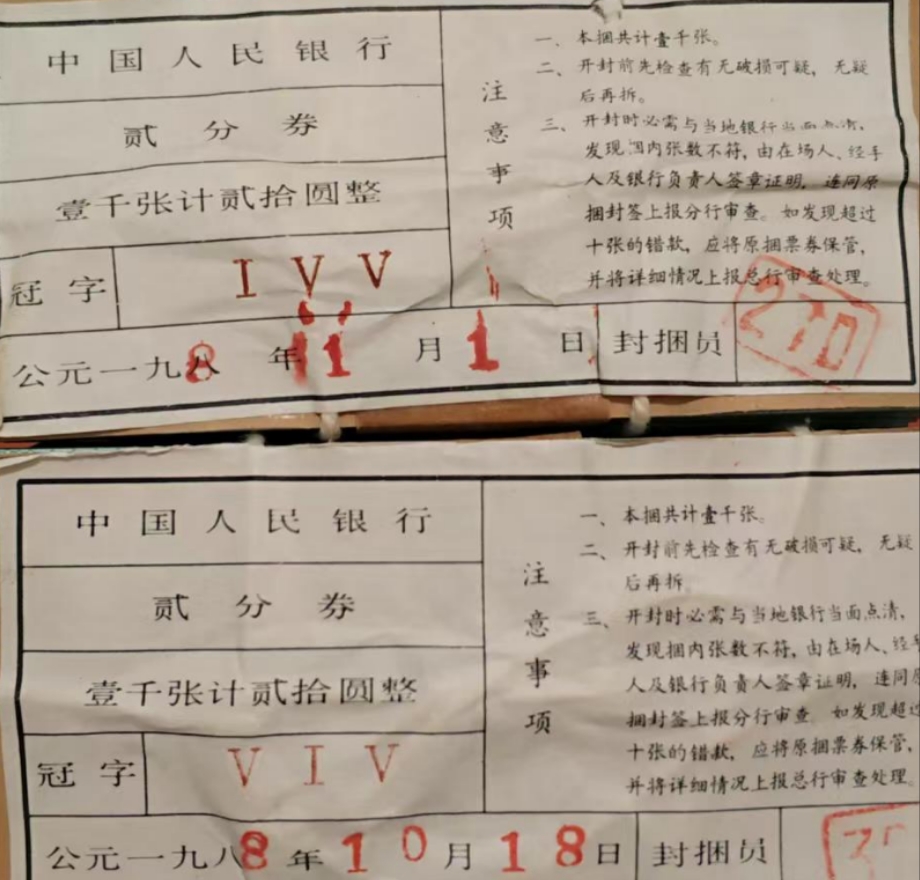 中国人民银行
贰分券
壹千张计贰拾圆整
冠字 I V V
公元一九八8年11月1日 封捆员 270
注意事项
一、本捆共计壹千张。
二、开封前先检查有无破损可疑，无疑
后再拆。
三、开封时必需与当地银行当面点清，
发现捆内张数不符，由在场人、经手
人及银行负责人签章证明，连同原
捆封签上报分行审查。如发现超过
十张的错款，应将原捆票券保管，
并将详细情况上报总行审查处理。
中国人民银行
贰分券
壹千张计贰拾圆整
冠字 V I V
公元一九八8年10月18日 封捆员
注意事项
一、本捆共计壹千张。
二、开封前先检查有无破损可疑，无疑
后再拆。
三、开封时必需与当地银行当面点清，
发现捆内张数不符，由在场人、经手
人及银行负责人签章证明，连同原
捆封签上报分行审查 如发现超过
十张的错款，应将原捆票券保管，
并将详细情况上报总行审查处理。